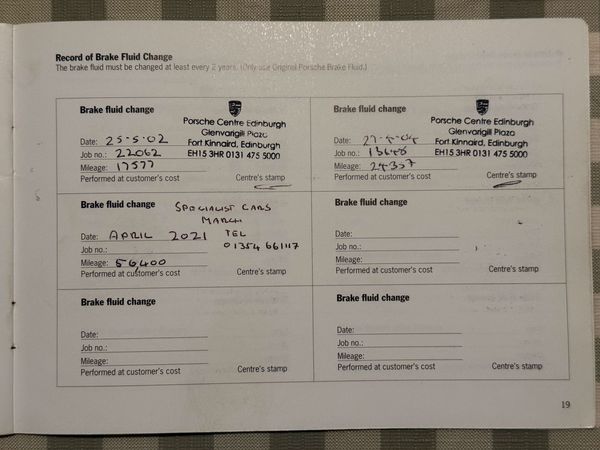 Record of Brake Fluid Change
The brake fluid must be changed at least every 2 years. (Only use Original Porsche Brake Fluid.)
Brake fluid change
Porsche Centre Edinburgh
Glenvarigill Plaza
Date: 25-5-02 Fort Kinnaird, Edinburgh
Job no.: 22062 EH15 3HR 0131 475 5000
Mileage: 17577
Performed at customer's cost Centre's stamp
Brake fluid change
Porsche Centre Edinburgh
Glenvarigill Plaza
Date: Fort Kinnaird, Edinburgh
Job no.: EH15 3HR 0131 475 5000
Mileage: 24357
Performed at customer's cost Centre's stamp
Brake fluid change SPECIALIST CARS
MARCH
Date: APRIL 2021 TEL
Job no.: 01354 661117
Mileage: 56,400
Performed at customer's cost Centre's stamp
Brake fluid change
Date:
Job no.:
Mileage:
Performed at customer's cost Centre's stamp
Brake fluid change
Date:
Job no.:
Mileage:
Performed at customer's cost Centre's stamp
Brake fluid change
Date:
Job no.:
Mileage:
Performed at customer's cost Centre's stamp
19